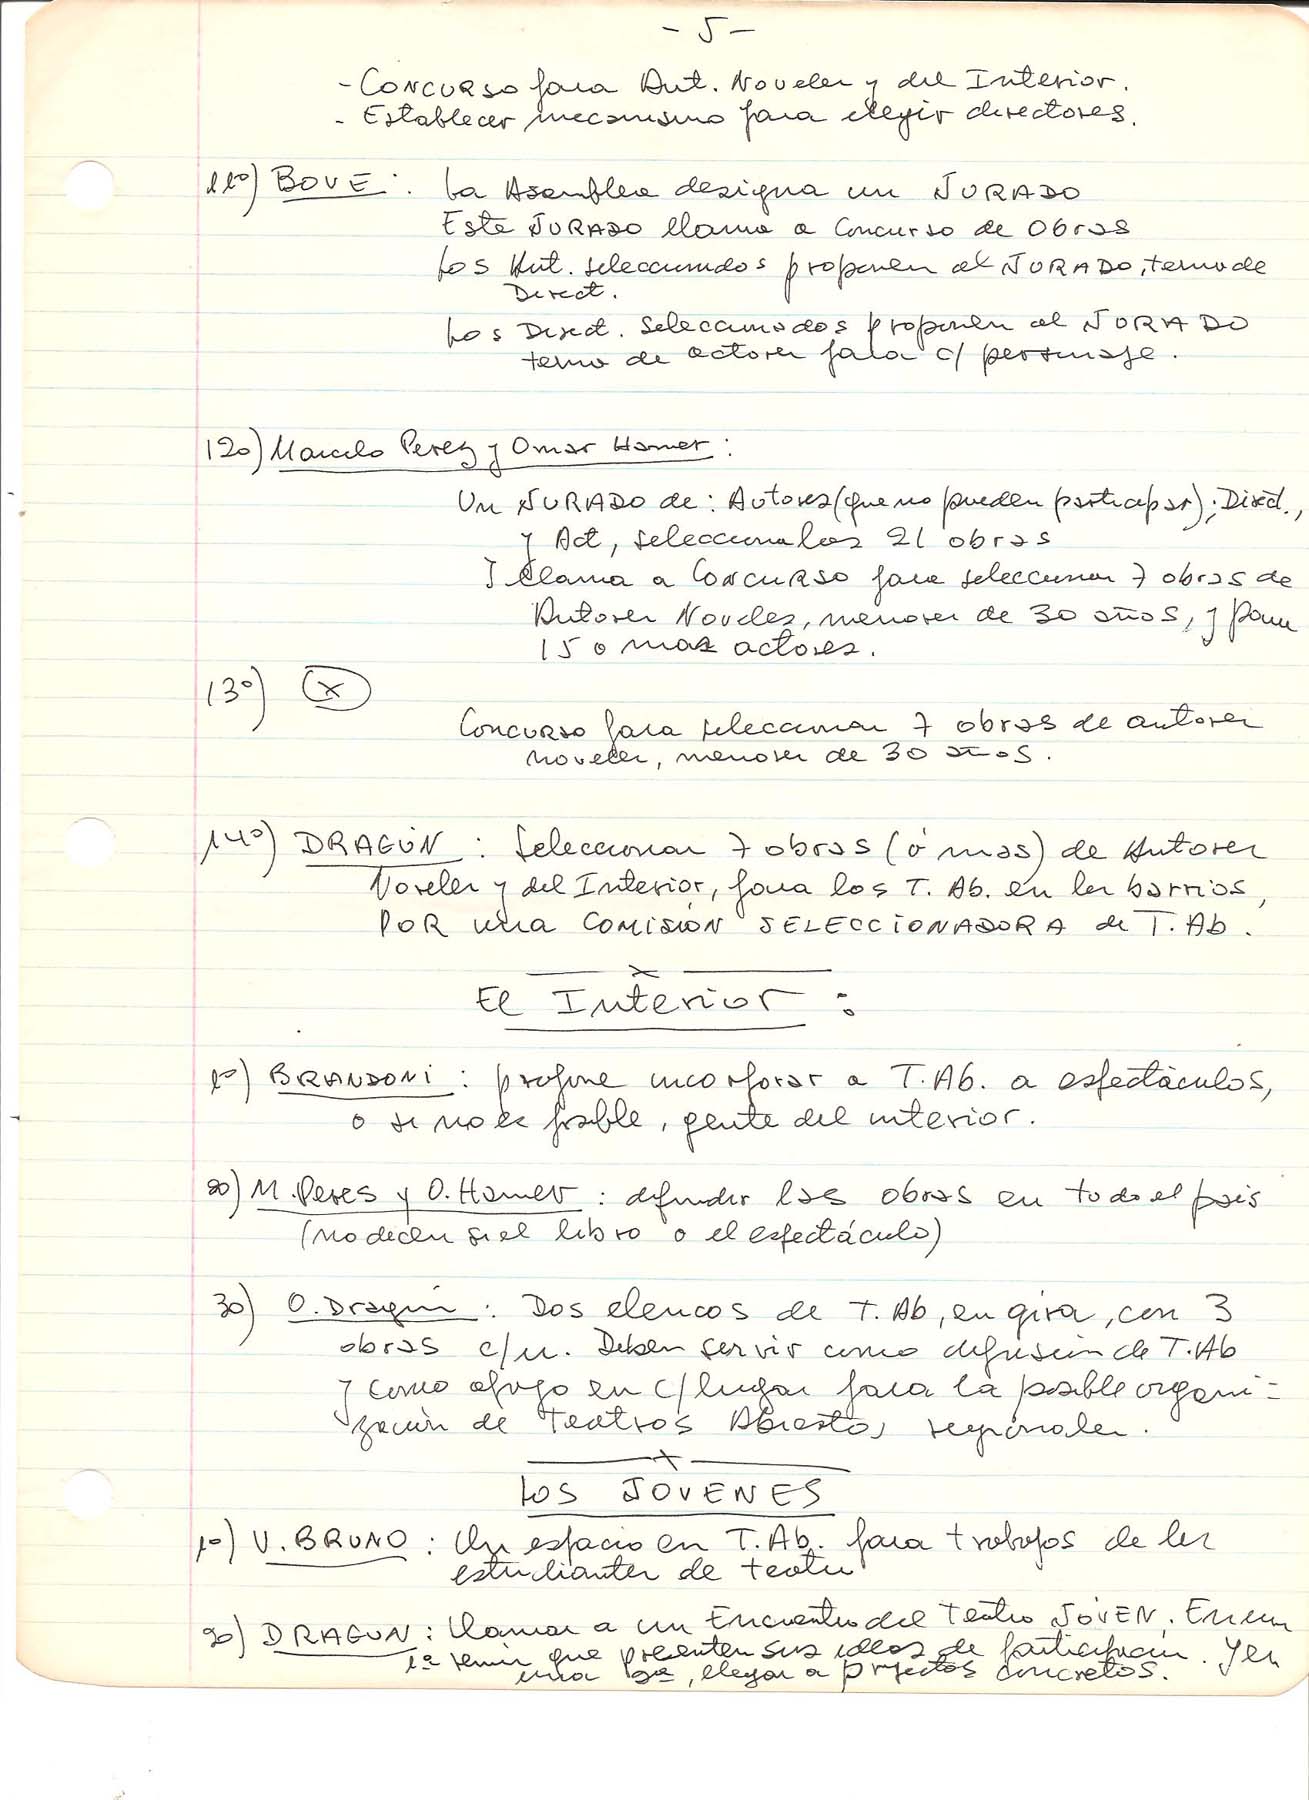 - 5 -
- CONCURSO para Aut. Noveles y del Interior.
- Establecer mecanismo para elegir directores.
11º) BOVE: La Asamblea designa un JURADO
Este JURADO llama a Concurso de Obras
Los Aut. seleccionados proponen al JURADO, terna de
Direct.
Los Direct. seleccionados proponen al JURADO
terna de actores para c/ personaje.
12º) Marcelo Perez y Omar Hamer:
Un JURADO de: Autores (que no pueden participar); Direct.,
y Act, selecciona las 21 obras
Y llama a CONCURSO para seleccionar 7 obras de
Autores Noveles, menores de 30 años, y para
15 o mas actores.
13º) (x)
Concurso para seleccionar 7 obras de autores
noveles, menores de 30 años.
14º) DRAGÚN: Seleccionar 7 obras (ó mas) de Autores
Noveles y del Interior, para los T. Ab. en los barrios,
POR una COMISIÓN SELECCIONADORA de T. Ab.
x
El Interior:
1º) BRANDONI: propone incorporar a T. Ab. a espectáculos,
o si no es posible, gente del interior.
2º) M. Peres y O. Hamer: difundir las obras en todo el país
(no dicen si el libro o el espectáculo)
3º) O. Dragún: Dos elencos de T. Ab, en gira, con 3
obras c/u. Deben servir como difusión de T. Ab
y como apoyo en c/lugar para la posible organi=
zación de Teatros Abiertos regionales.
x
LOS JOVENES
1º) V. BRUNO: Un espacio en T. Ab. para trabajos de los
estudiantes de teatro
2º) DRAGUN: Llamar a un Encuentro del Teatro JOVEN. En una
1ª reunión que presenten sus ideas de participación. Y en
una 2ª, llegar a proyectos concretos.